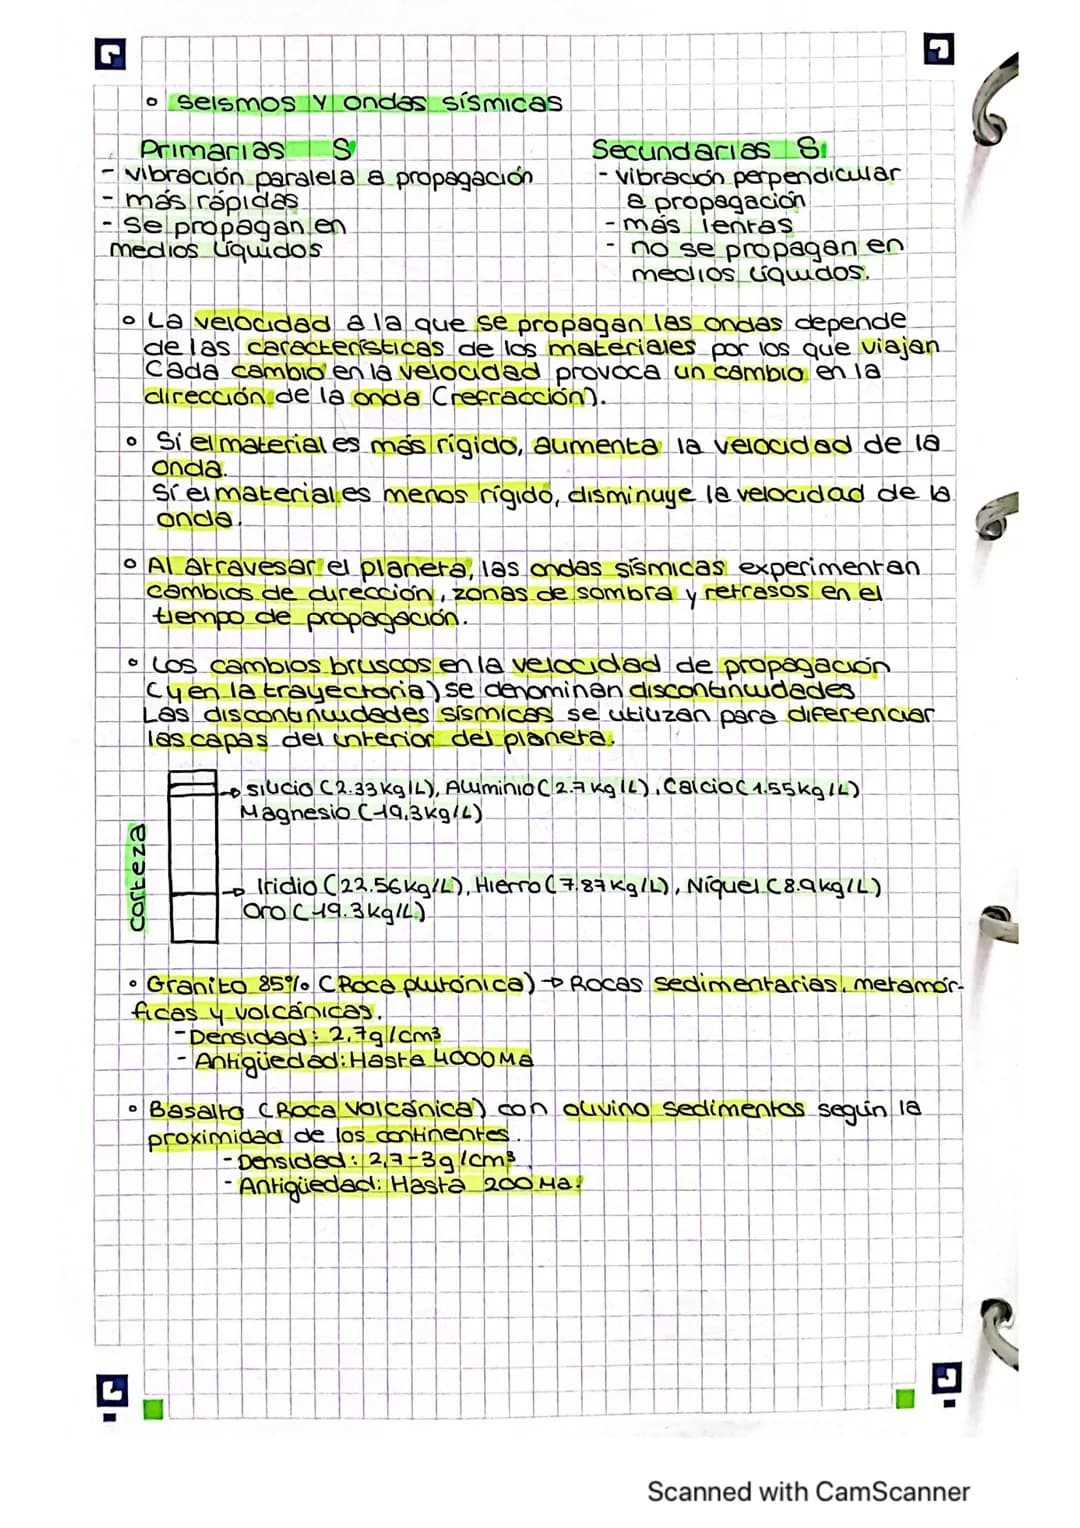 Seismos y ondas sísmicas
Primarias S
- vibración paralela a propagación
- más rápidas
- se propagan en
medios líquidos
Secundarias S
- vibración perpendicular
a propagación
- más lentas
- no se propagan en
medios líquidos.
La velocidad a la que se propagan las ondas depende
de las características de los materiales por los que viajan
Cada cambio en la velocidad provoca un cambio en la
dirección de la onda (refracción).
Si el material es más rígido, aumenta la velocidad de la
onda.
Si el material es menos rígido, disminuye la velocidad de la
onda.
Al atravesar el planeta, las ondas sísmicas experimentan
cambios de dirección, zonas de sombra y retrasos en el
tiempo de propagación.
Los cambios bruscos en la velocidad de propagación
(y en la trayectoria) se denominan discontinuidades
Las discontinuidades sísmicas se utilizan para diferenciar
las capas del interior del planeta.
corteza
→ silicio (2.33kg/L), Aluminio (2.7 kg/L), Calcio (1.55kg/L)
Magnesio (19,3kg/L)
→ Iridio (22.56kg/L), Hierro (7.87kg/L), Níquel (8.9kg/L)
Oro (19.3kg/L)
Granito 85% (Roca plutónica) → Rocas sedimentarias, metamór-
ficas y volcánicas.
- Densidad: 2,7g/cm³
- Antigüedad: Hasta 4000 Ma
Basalto (Roca volcánica) con olivino sedimentos según la
proximidad de los continentes.
- Densidad: 2,7-3g/cm³
- Antigüedad: Hasta 200 Ma.
Scanned with CamScanner